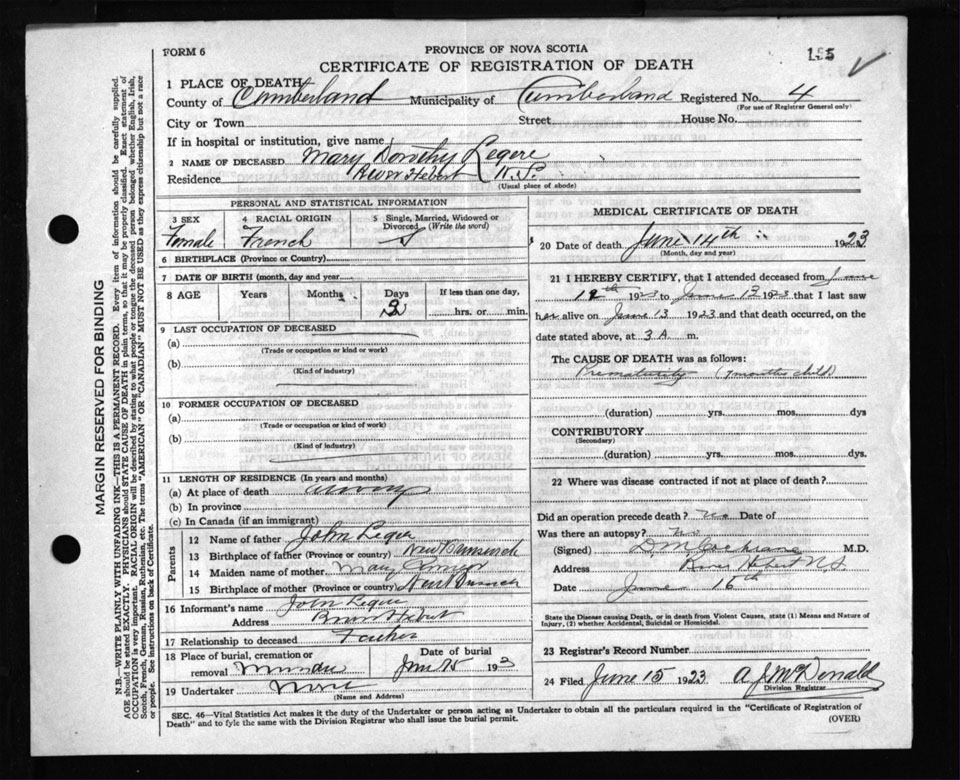 FORM 6
PROVINCE OF NOVA SCOTIA
CERTIFICATE OF REGISTRATION OF DEATH
1 PLACE OF DEATH
County of Cumberland Municipality of Cumberland Registered No. 4
(For use of Registrar General only)
City or Town Street House No.
If in hospital or institution, give name
2 NAME OF DECEASED Mary Dorothy Legere
Residence River Hebert N.S.
(Usual place of abode)
PERSONAL AND STATISTICAL INFORMATION
3 SEX 4 RACIAL ORIGIN 5 Single, Married, Widowed or Divorced (Write the word)
Female French S
6 BIRTHPLACE (Province or Country)
7 DATE OF BIRTH (month, day and year)
8 AGE Years Months Days If less than one day,
hrs. or min.
9 LAST OCCUPATION OF DECEASED
(a)
(Trade or occupation or kind or work)
(b)
(Kind of industry)
10 FORMER OCCUPATION OF DECEASED
(a)
(Trade or occupation or kind of work)
(b)
(Kind of industry)
11 LENGTH OF RESIDENCE (In years and months)
(a) At place of death
(b) In province
(c) In Canada (if an immigrant)
Parents
12 Name of father John Legere
13 Birthplace of father (Province or country) New Brunswick
14 Maiden name of mother Mary
15 Birthplace of mother (Province or country) New Brunswick
16 Informant's name John Legere
Address River Hebert
17 Relationship to deceased Father
18 Place of burial, cremation or removal Minudie Date of burial June 15 1923
19 Undertaker None
(Name and Address)
MEDICAL CERTIFICATE OF DEATH
20 Date of death June 14th 1923
(Month, day and year)
21 I HEREBY CERTIFY, that I attended deceased from June
12th 1923 to June 13 1923 that I last saw
her alive on June 13 1923 and that death occurred, on the
date stated above, at 3 A. m.
The CAUSE OF DEATH was as follows:
Prematurity (7 months child)
(duration) yrs. mos. dys
CONTRIBUTORY
(Secondary)
(duration) yrs. mos. dys.
22 Where was disease contracted if not at place of death?
Did an operation precede death? No Date of
Was there an autopsy? No
(Signed) D. M. Cochrane M.D.
Address River Hebert N.S.
Date June 15th
State the Disease causing Death, or in death from Violent Causes, state (1) Means and Nature of
Injury, (2) whether Accidental, Suicidal or Homicidal.
23 Registrar's Record Number
24 Filed June 15 1923 A. J. McDonald
Division Registrar
SEC. 46—Vital Statistics Act makes it the duty of the Undertaker or person acting as Undertaker to obtain all the particulars required in the "Certificate of Registration of
Death" and to fyle the same with the Division Registrar who shall issue the burial permit.
(OVER)
MARGIN RESERVED FOR BINDING
N.B.—WRITE PLAINLY WITH UNFADING INK—THIS IS A PERMANENT RECORD. Every item of information should be carefully supplied.
AGE should be stated EXACTLY. PHYSICIANS should STATE CAUSE OF DEATH in plain terms, so that it may be properly classified. Exact statement of
OCCUPATION is very important. RACIAL ORIGIN will be described by stating to what people or tongue the deceased person belonged whether English, Irish,
Scotch, French, German, Russian, Ruthenian, etc. The terms "AMERICAN" OR "CANADIAN" MUST NOT BE USED as they express citizenship but not a race
or people. See instructions on back of Certificate.